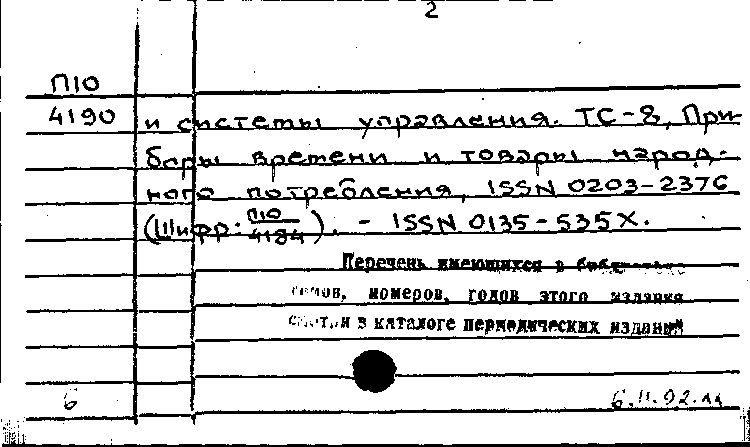 2
П10
4190
и системы управления. ТС-8, При-
боры времени и товары народ-
ного потребления, ISSN 0203-2376
(Шифр: П10/4184). - ISSN 0135-535X.
Перечень имеющихся в библиотеке
томов, номеров, годов этого издания
смотри в каталоге периодических изданий
6
6.11.92.